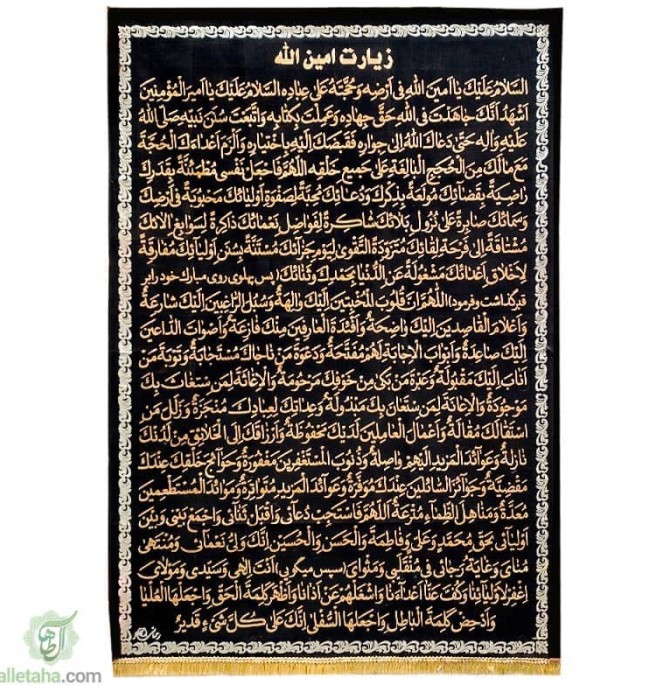 زیارت امین الله
السَّلامُ عَلَیْکَ یا اَمینَ اللهِ فی اَرْضِهِ وَ حُجَّتَهُ عَلی عِبادِهِ السَّلامُ عَلَیْکَ یا اَمیرَ الْمُؤْمِنینَ
اَشْهَدُ اَنَّکَ جاهَدْتَ فِی اللهِ حَقَّ جِهادِهِ وَ عَمِلْتَ بِکِتابِهِ وَ اتَّبَعْتَ سُنَنَ نَبِیِّهِ صَلَّی اللهُ
عَلَیْهِ وَ الِهِ حَتّی دَعاکَ اللهُ اِلی جِوارِهِ فَقَبَضَکَ اِلَیْهِ بِاخْتِیارِهِ وَ اَلْزَمَ اَعْدائَکَ الْحُجَّةَ
مَعَ مالَکَ مِنَ الْحُجَجِ الْبالِغَةِ عَلی جَمیعِ خَلْقِهِ اَللّهُمَّ فَاجْعَلْ نَفْسی مُطْمَئِنَّةً بِقَدَرِکَ
راضِیَةً بِقَضائِکَ مُولَعَةً بِذِکْرِکَ وَ دُعائِکَ مُحِبَّةً لِصَفْوَةِ اَوْلِیائِکَ مَحْبُوبَةً فی اَرْضِکَ
وَ سَمائِکَ صابِرَةً عَلی نُزُولِ بَلائِکَ شاکِرَةً لِفَواضِلِ نَعْمائِکَ ذاکِرَةً لِسَوابِغِ الائِکَ
مُشْتاقَةً اِلی فَرْحَةِ لِقائِکَ مُتَزَوِّدَةً التَّقْوی لِیَوْمِ جَزائِکَ مُسْتَنَّةً بِسُنَنِ اَوْلِیائِکَ مُفارِقَةً
لِاَخْلاقِ اَعْدائِکَ مَشْغُولَةً عَنِ الدُّنْیا بِحَمْدِکَ وَ ثَنائِکَ (پس پهلوی روی مبارک خود را بر
قبر گذاشت و فرمود) اَللّهُمَّ اِنَّ قُلُوبَ الْمُخْبِتینَ اِلَیْکَ والِهَةٌ وَ سُبُلَ الرّاغِبینَ اِلَیْکَ شارِعَةٌ
وَ اَعْلامَ الْقاصِدینَ اِلَیْکَ واضِحَةٌ وَ اَفْئِدَةَ الْعارِفینَ مِنْکَ فازِعَةٌ وَ اَصْواتَ الدّاعینَ
اِلَیْکَ صاعِدَةٌ وَ اَبْوابَ الْاِجابَةِ لَهُمْ مُفَتَّحَةٌ وَ دَعْوَةَ مَنْ ناجاکَ مُسْتَجابَةٌ وَ تَوْبَةَ مَنْ
اَنابَ اِلَیْکَ مَقْبُولَةٌ وَ عَبْرَةَ مَنْ بَکی مِنْ خَوْفِکَ مَرْحُومَةٌ وَ الْاِغاثَةَ لِمَنِ اسْتَغاثَ بِکَ
مَوْجُودَةٌ وَ الْاِعانَةَ لِمَنِ اسْتَعانَ بِکَ مَبْذُولَةٌ وَ عِداتِکَ لِعِبادِکَ مُنْجَزَةٌ وَ زَلَلَ مَنِ
اسْتَقالَکَ مُقالَةٌ وَ اَعْمالَ الْعامِلینَ لَدَیْکَ مَحْفُوظَةٌ وَ اَرْزاقَکَ اِلَی الْخَلائِقِ مِنْ لَدُنْکَ
نازِلَةٌ وَ عَوائِدَ الْمَزیدِ اِلَیْهِمْ واصِلَةٌ وَ ذُنُوبَ الْمُسْتَغْفِرینَ مَغْفُورَةٌ وَ حَوائِجَ خَلْقِکَ عِنْدَکَ
مَقْضِیَّةٌ وَ جَوائِزَ السّائِلینَ عِنْدَکَ مُوَفَّرَةٌ وَ عَوائِدَ الْمَزیدِ مُتَواتِرَةٌ وَ مَوائِدَ الْمُسْتَطْعِمینَ
مُعَدَّةٌ وَ مَناهِلَ الظِّماءِ مُتْرَعَةٌ اَللّهُمَّ فَاسْتَجِبْ دُعائی وَ اقْبَلْ ثَنائی وَ اجْمَعْ بَیْنی وَ بَیْنَ
اَوْلِیائی بِحَقِّ مُحَمَّدٍ وَ عَلِیٍّ وَ فاطِمَةَ وَ الْحَسَنِ وَ الْحُسَیْنِ اِنَّکَ وَلِیُّ نَعْمائی وَ مُنْتَهی
مُنایَ وَ غایَةُ رَجائی فی مُنْقَلَبی وَ مَثْوایَ (سپس میگویی) اَنْتَ اِلهی وَ سَیِّدی وَ مَوْلایَ
اِغْفِرْ لِاَوْلِیائِنا وَ کُفَّ عَنّا اَعْدائَنا وَ اشْغَلْهُمْ عَنْ اَذانا وَ اَظْهِرْ کَلِمَةَ الْحَقِّ وَ اجْعَلْهَا الْعُلْیا
وَ اَدْحِضْ کَلِمَةَ الْباطِلِ وَ اجْعَلْهَا السُّفْلی اِنَّکَ عَلی کُلِّ شَیْءٍ قَدیرٌ
alletaha.com